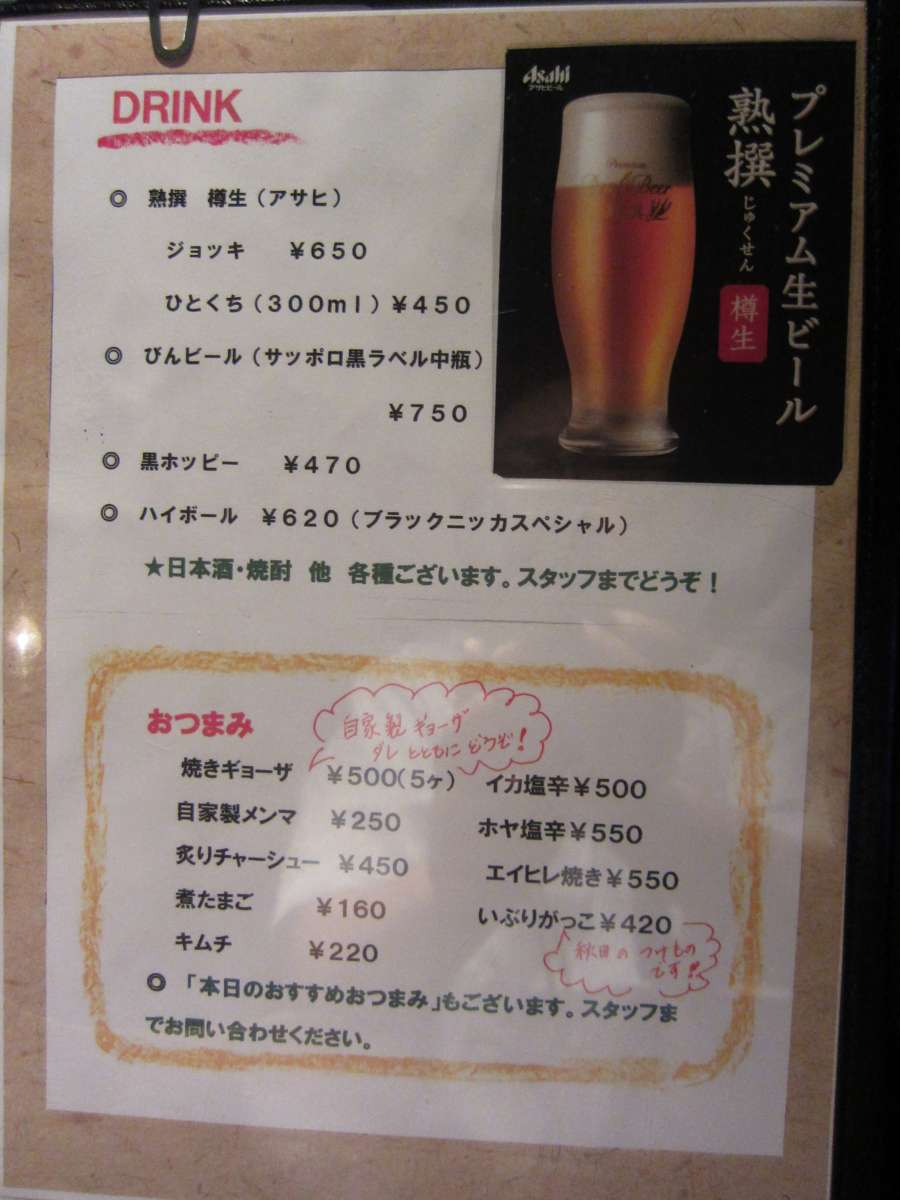 DRINK
◎ 熟撰 樽生(アサヒ)
ジョッキ ¥650
ひとくち(300ml)¥450
◎ びんビール(サッポロ黒ラベル中瓶)
¥750
◎ 黒ホッピー ¥470
◎ ハイボール ¥620(ブラックニッカスペシャル)
★日本酒・焼酎 他 各種ございます。スタッフまでどうぞ!
Asahi
アサヒビール
プレミアム生ビール
熟撰
じゅくせん
樽生
Premium
Draft Beer
おつまみ
自家製ギョーザ
ダレとともにどうぞ!
焼きギョーザ ¥500(5ヶ)
自家製メンマ ¥250
炙りチャーシュー ¥450
煮たまご ¥160
キムチ ¥220
イカ塩辛¥500
ホヤ塩辛¥550
エイヒレ焼き¥550
いぶりがっこ¥420
秋田のつけもの
です!!
◎ 「本日のおすすめおつまみ」もございます。スタッフま
でお問い合わせください。